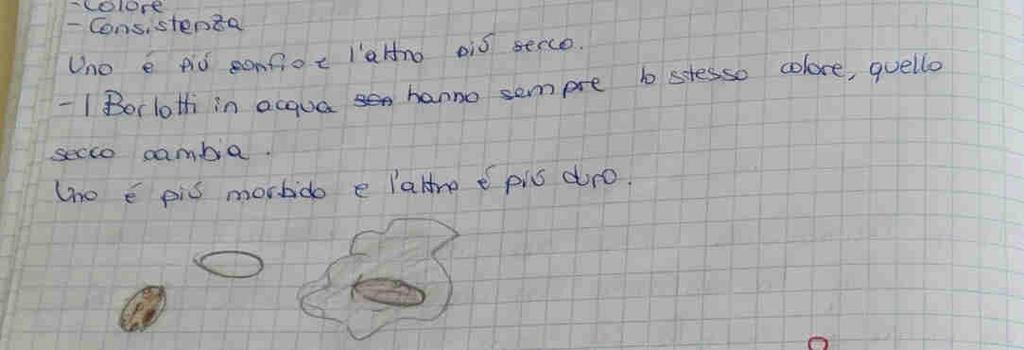 - Colore
- Consistenza
Uno é più gonfio e l'altro più secco.
- I Borlotti in acqua hanno sempre lo stesso colore, quello
secco cambia.
Uno é più morbido e l'altro é più duro.